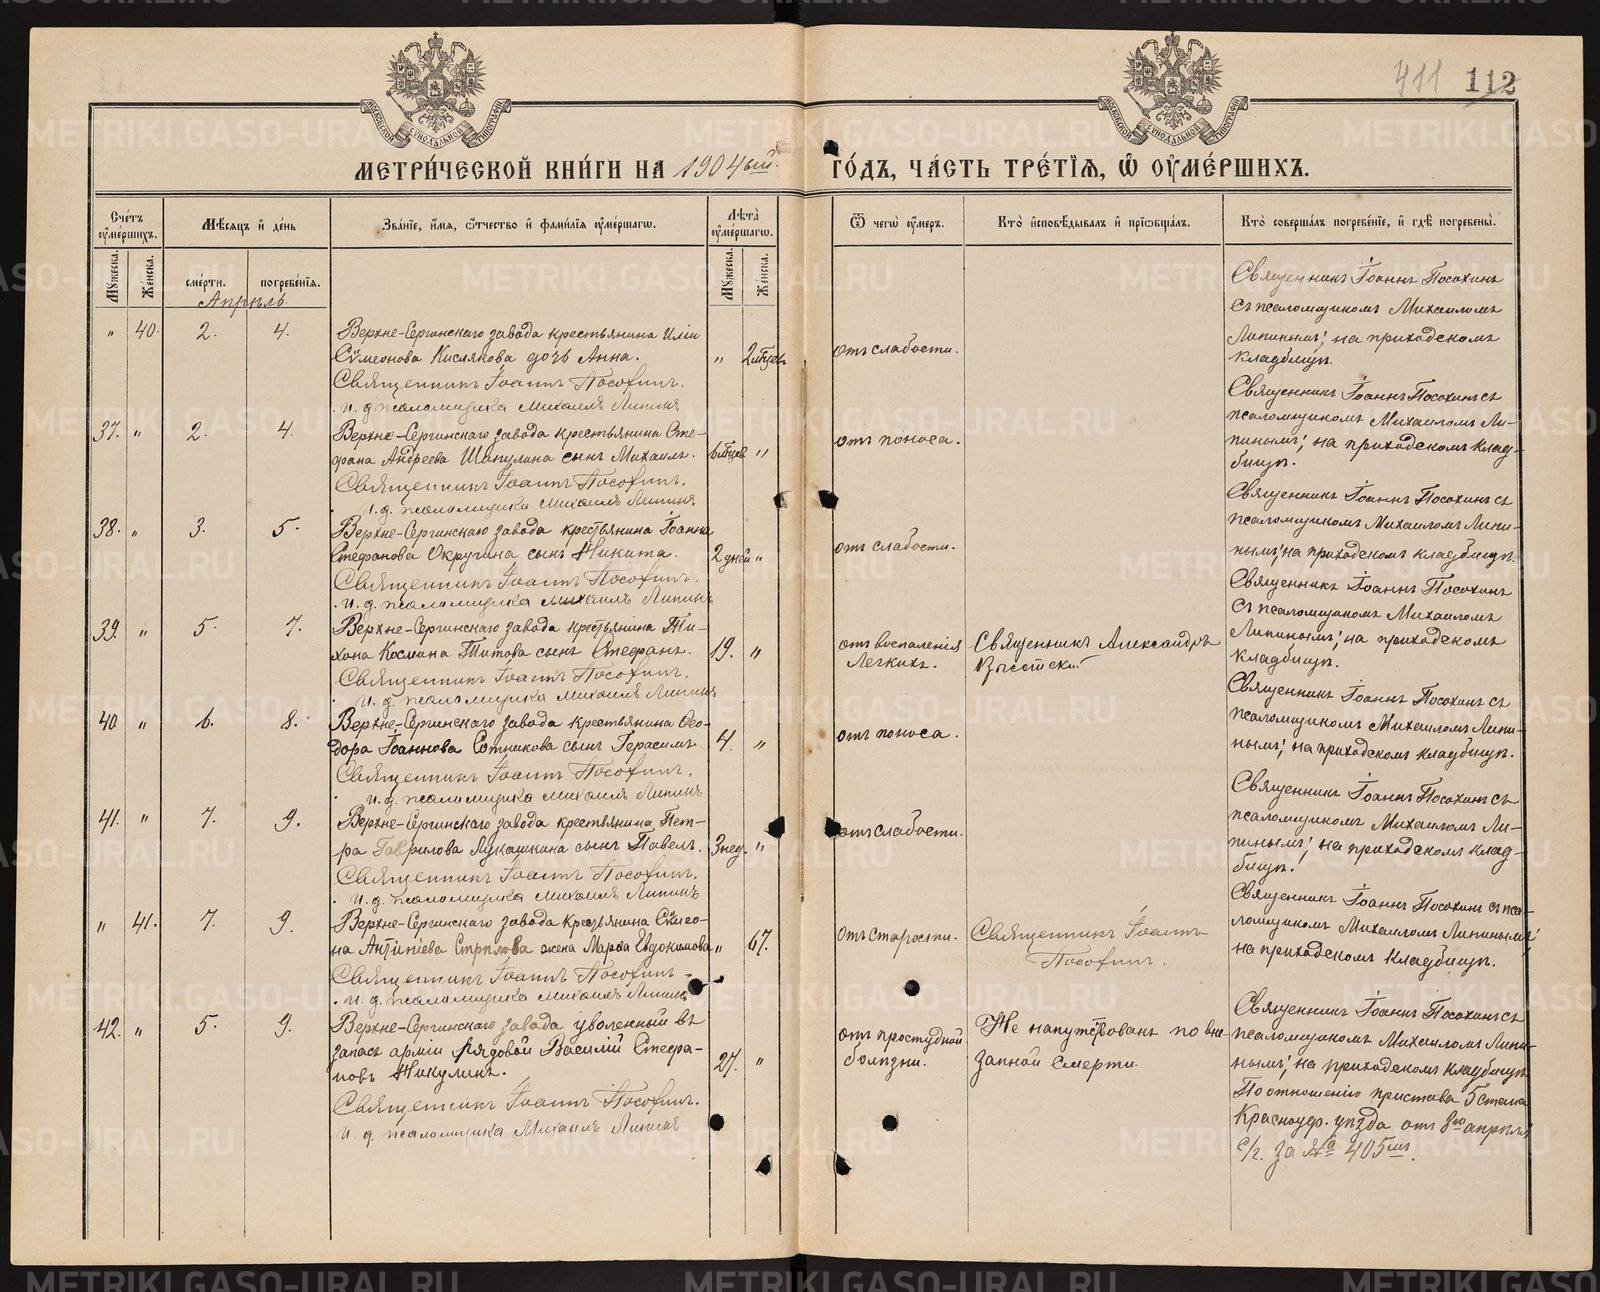 411 112
МОСКОВСКОЙ СУНОДАЛЬНОЙ ТИПОГРАФІИ
МОСКОВСКОЙ СУНОДАЛЬНОЙ ТИПОГРАФІИ
МЕТРИ́ЧЕСКОЙ КНИ́ГИ НА 1904ый. ГО́ДЪ, ЧА́СТЬ ТРЕ́ТІЯ, Ѿ ОУМЕ́РШИХЪ.
Сче́тъ оуме́ршихъ.
Мѣ́сяцъ и де́нь
Зва́ніе, и́мя, ѻ́тчество и фами́лія оуме́ршагѡ.
Лѣта̀ оуме́ршагѡ.
Ѿ чегѡ̀ оу́меръ.
Кто̀ исповѣ́дывалъ и пріѡбща́лъ.
Кто̀ соверша́лъ погребе́ніе, и гдѣ̀ погребены̀.
Му́жеска.
Же́нска.
сме́рти.
погребе́нія.
Му́жеска.
Же́нска.
Апрѣль
„ 40. 2. 4.
Верхне-Сергинскаго завода крестьянина Иліи
Сѵмеонова Кислякова дочь Анна.
Священникъ Іоаннъ Посохинъ.
и. д. псаломщика Михаилъ Липинъ
„ 2 мѣсяц
отъ слабости.
Священникъ Іоаннъ Посохинъ
съ псаломщикомъ Михаиломъ
Липинымъ; на приходскомъ
кладбищѣ.
37. „ 2. 4.
Верхне-Сергинскаго завода крестьянина Сте-
фана Андреева Шикулина сынъ Михаилъ.
Священникъ Іоаннъ Посохинъ.
и. д. псаломщика Михаилъ Липинъ
6 мѣсяцев „
отъ поноса.
Священникъ Іоаннъ Посохинъ съ
псаломщикомъ Михаиломъ Ли-
пинымъ; на приходскомъ клад-
бищѣ.
38. „ 3. 5.
Верхне-Сергинскаго завода крестьянина Іоанна
Стефанова Округина сынъ Никита.
Священникъ Іоаннъ Посохинъ.
и. д. псаломщика Михаилъ Липинъ
2 дней „
отъ слабости.
Священникъ Іоаннъ Посохинъ съ
псаломщикомъ Михаиломъ Липи-
нымъ; на приходскомъ кладбищѣ.
39. „ 5. 7.
Верхне-Сергинскаго завода крестьянина Ти-
хона Космина Титова сынъ Стефанъ.
Священникъ Іоаннъ Посохинъ.
и. д. псаломщика Михаилъ Липинъ
19. „
отъ воспаленія
Легкихъ.
Священникъ Александръ
Высотскій
Священникъ Іоаннъ Посохинъ
съ псаломщикомъ Михаиломъ
Липинымъ; на приходскомъ
кладбищѣ.
40 „ 6. 8.
Верхне-Сергинскаго завода крестьянина Ѳео-
дора Іоаннова Сотникова сынъ Герасимъ
Священникъ Іоаннъ Посохинъ.
и. д. псаломщика Михаилъ Липинъ
4. „
отъ поноса.
Священникъ Іоаннъ Посохинъ съ
псаломщикомъ Михаиломъ Липи-
нымъ; на приходскомъ кладбищѣ.
41. „ 7. 9.
Верхне-Сергинскаго завода крестьянина Пет-
ра Гаврилова Лукашкина сынъ Павелъ.
Священникъ Іоаннъ Посохинъ.
и. д. псаломщика Михаилъ Липинъ
3 нед. „
отъ слабости.
Священникъ Іоаннъ Посохинъ съ
псаломщикомъ Михаиломъ Ли-
пинымъ; на приходскомъ клад-
бищѣ.
„ 41. 7. 9.
Верхне-Сергинскаго завода крестьянина Сѵмео-
на Антипіева Стрѣлова жена Марѳа Евдокимова
Священникъ Іоаннъ Посохинъ
и. д. псаломщика Михаилъ Липинъ
„ 67.
отъ старости.
Священникъ Іоаннъ
Посохинъ.
Священникъ Іоаннъ Посохинъ съ пса-
ломщикомъ Михаиломъ Липинымъ;
на приходскомъ кладбищѣ.
42. „ 5. 9.
Верхне-Сергинскаго завода уволенный въ
запасъ арміи рядовой Василій Стефа-
новъ Никулинъ.
Священникъ Іоаннъ Посохинъ.
и. д. псаломщика Михаилъ Липинъ
27. „
отъ простудной
болѣзни.
Не напутствованъ по вне-
запной смерти.
Священникъ Іоаннъ Посохинъ съ
псаломщикомъ Михаиломъ Липи-
нымъ; на приходскомъ кладбищѣ
По отношенію пристава 5 стана
Красноуф. уѣзда отъ 8го апрѣля
с/г. за № 405мъ.
METRIKI.GASO-URAL.RU